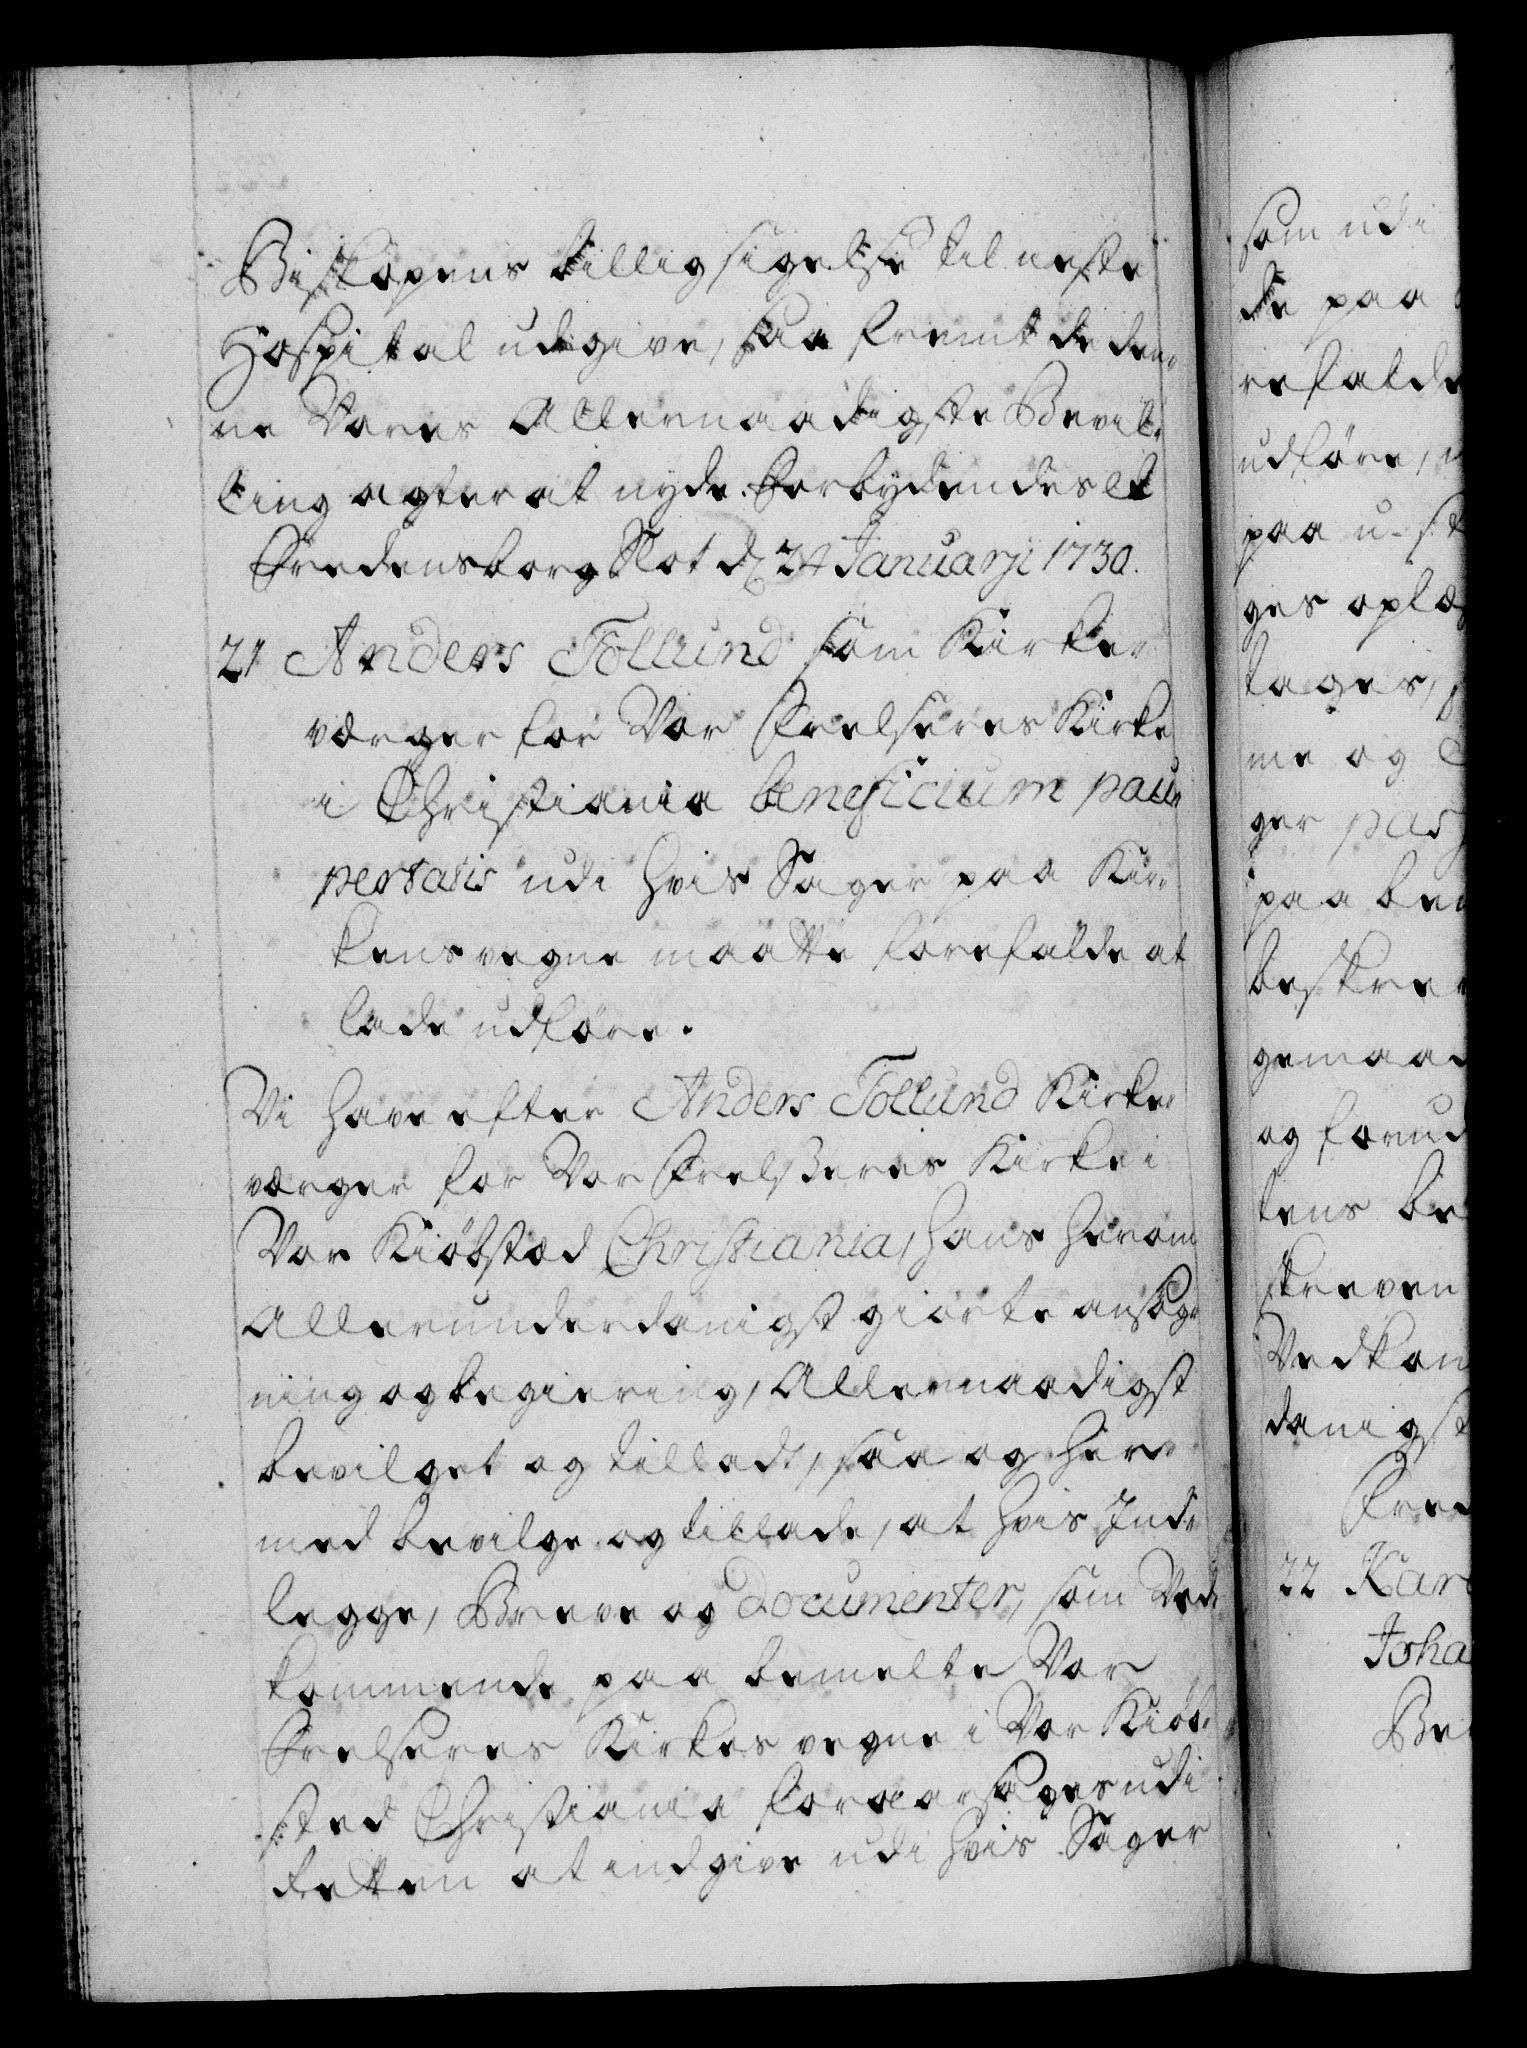 Biskopens billigsigelse til neste
Hospital udgive, saa fremt de den,,
ne Vores Allernaadigste Bevil,,
ling agter at nyde. Forbydendes etc
Fredensborg Slot d. 24 Januarji 1730.
21 Anders Tollund som Kirke,,
værger for Vor Frelseres Kirke
i Christiania beneficium pau,,
pertatis udi hvis Sager paa Kir,,
kens vegne maatte forefalde at
lade udføre.
Vi have efter Anders Tollund Kirke,,
værger for Vor Frelseres Kirke i
Vor Kiøbstæd Christiania, hans herom
Allerunderdanigst giorte ansøg,,
ning og begiering, Allernaadigst
bevilget og tilladt, saa og her,,
med bevilge og tillade, at hvis Ind,,
legge, Breve og Documenter, som Ved,,
kommende paa bemelte Vor
Frelseres Kirkes vegne i Vor Kiøb,,
sted Christiania foraarsages udi
Retten at indgive udi hvis Sager
som udi
de paa
refalde
udføre,
paa u-st
ges oplæ
tages,
me og
ger
paa be
beskrev
gemaa
og forud
tens be
skreven
Vedkom
danigst
Fred
22 Kar
Joha
Be